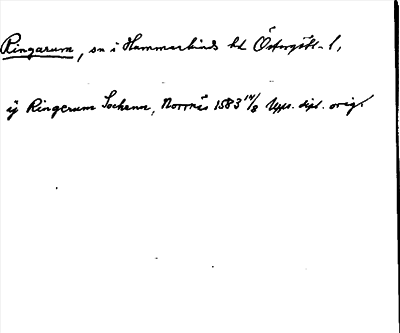 Ringarum, sn i Hammarkinds hd Östergötl. l,
ij Ringerum Sochnn, Norrnäs 1583 14/8 Upps. dipl. orig.